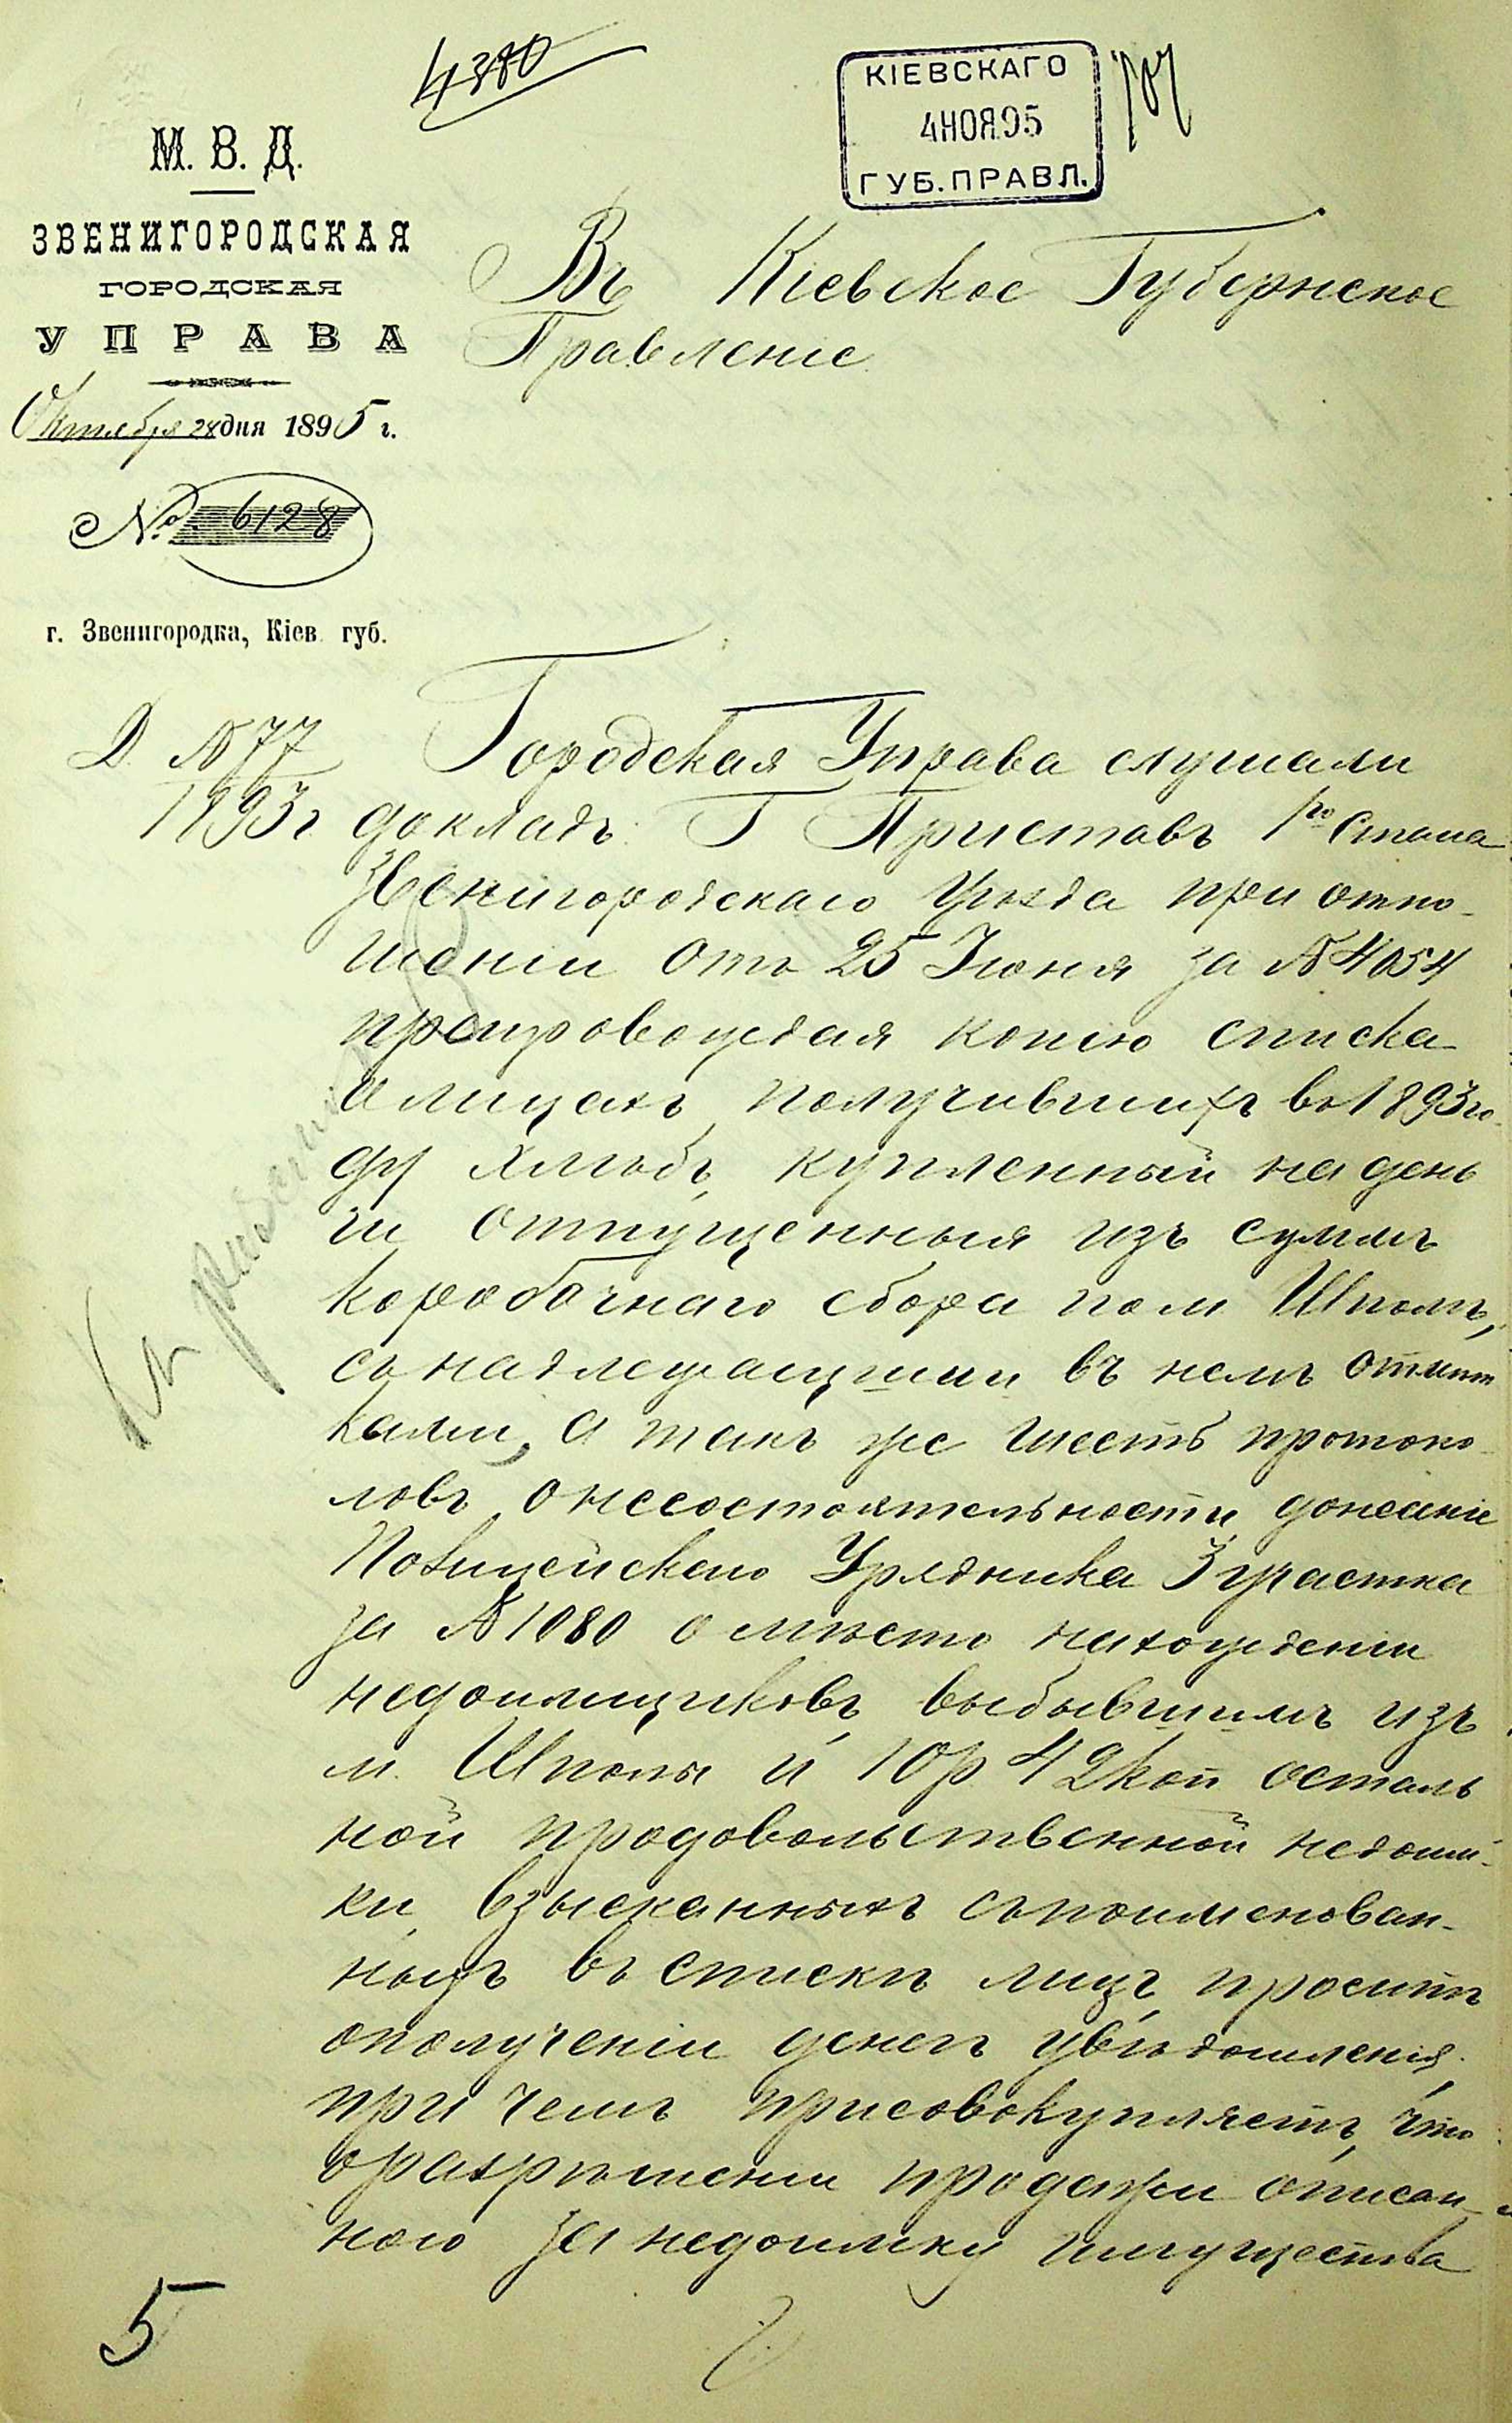 4380
КІЕВСКАГО
4 НОЯ.95
ГУБ.ПРАВЛ.
М. В. Д.
ЗВЕНИГОРОДСКАЯ
ГОРОДСКАЯ
УПРАВА
Октября 28 дня 1895 г.
№ 6128
г. Звенигородка, Кіев. губ.
Въ Кіевское Губернское
Правленіе
Д. №77
1893 г.
Городская Управа слушали
докладъ: Г. Приставъ 1го Стана
Звенигородскаго Уѣзда при отно-
шеніи отъ 25 Іюня за №4054
препровождая копію списка
о лицахъ, получившихъ въ 1893 го-
ду хлѣбъ, купленный на день
ги отпущенныя изъ суммъ
коробочнаго сбора по м. Шполѣ,
съ надлежащими въ немъ отмѣт
ками, а такъ же шесть протоко-
ловъ о несостоятельности, донесеніе
Полицейскаго Урядника 3 участка
за №1080 о мѣсто нахожденіи
недоимщиковъ, выбывшимъ изъ
м. Шполы и 10 р. 42 коп осталь
ной продовольственной недоим-
ки, взысканныхъ съ поименован-
ныхъ въ спискѣ лицъ, проситъ
о полученіи денегъ увѣдомленія,
при чемъ присовокупляетъ, что
о разрѣшеніи продажи описан-
ного за недоимку имущества
5